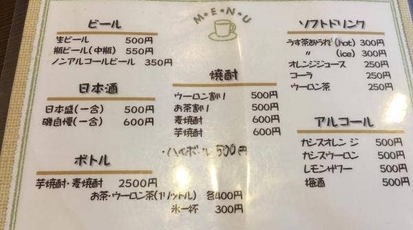 MENU
ビール
生ビール 500円
瓶ビール(中瓶) 550円
ノンアルコールビール 350円
日本酒
日本盛(一合) 500円
磯自慢(一合) 600円
ボトル
芋焼酎・麦焼酎 2500円
お茶・ウーロン茶(1リットル) 各400円
氷一杯 300円
焼酎
ウーロン割り 500円
お茶割り 500円
麦焼酎 600円
芋焼酎 600円
・ハイボール 500円
ソフトドリンク
うす茶あられ (hot) 300円
〃 (ice) 300円
オレンジジュース 250円
コーラ 250円
ウーロン茶 250円
アルコール
カシスオレンジ 500円
カシスウーロン 500円
レモンサワー 500円
梅酒 500円